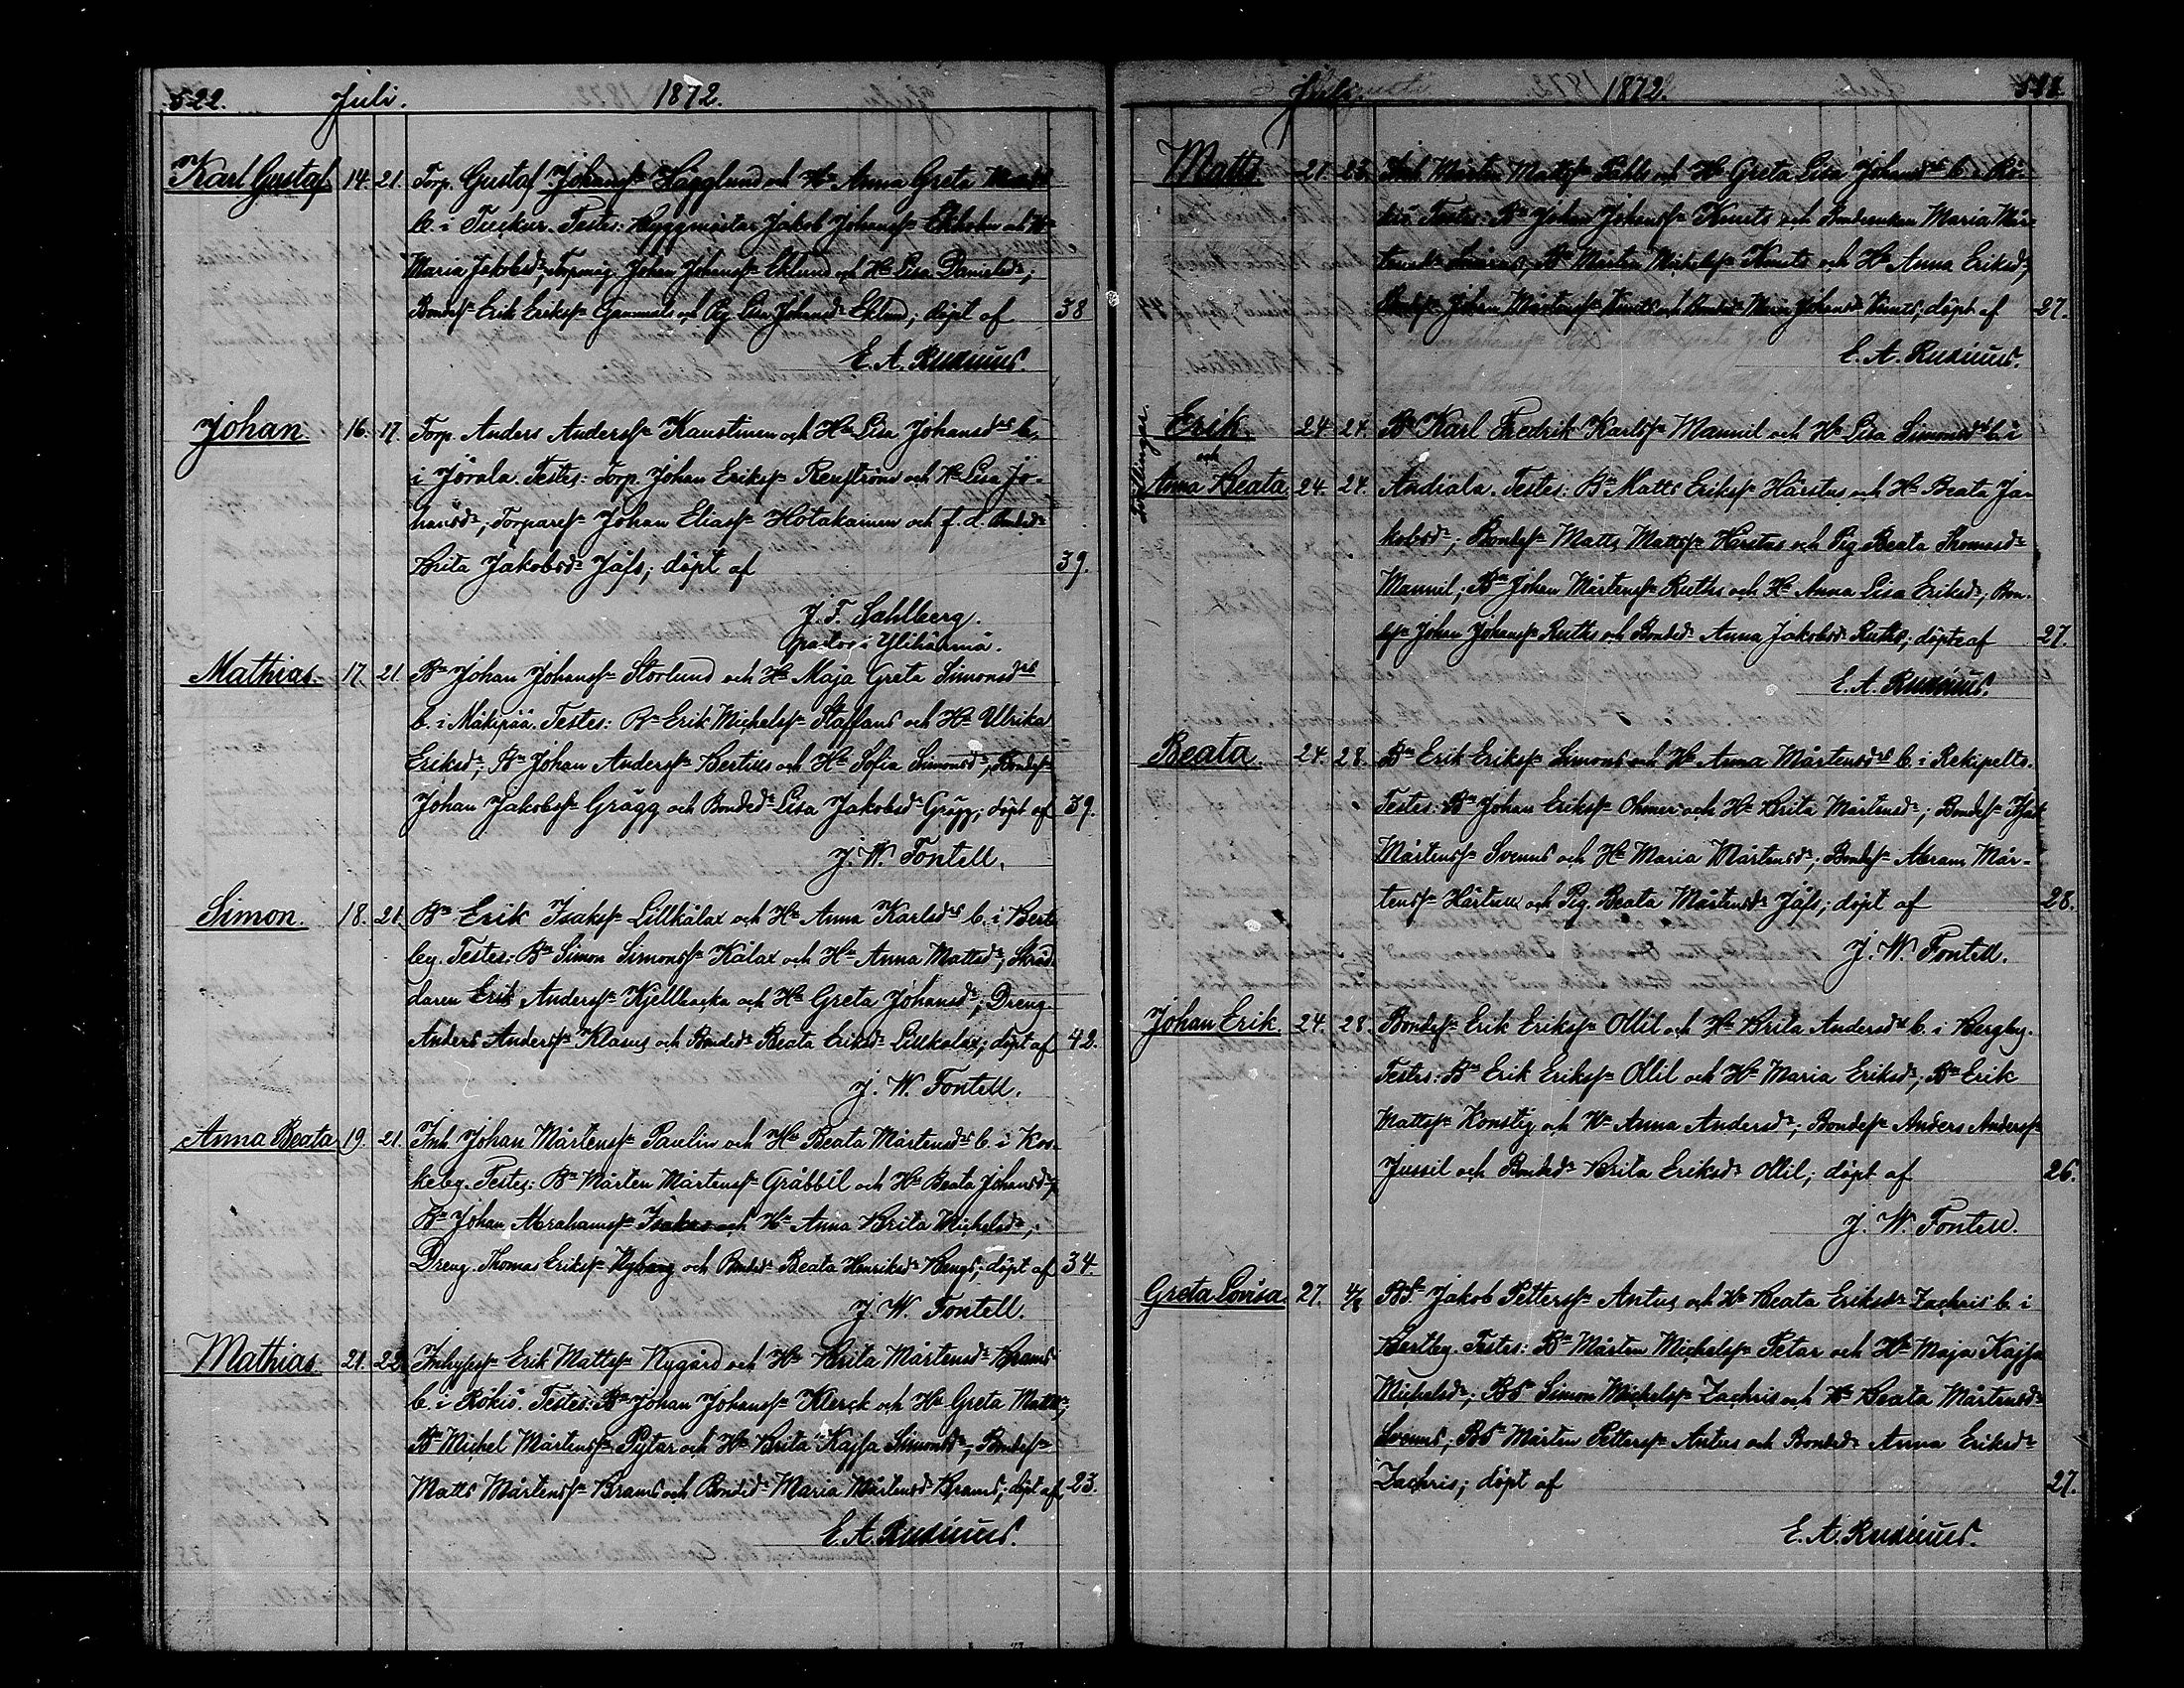 522. Juli. 1872.
Karl Gustaf 14. 21. Torp. Gustaf Johansſn Hägglund och Hn Anna Greta
b. i Tuckur. Testes: Byggmästar Jakob Johansſn Ekholm och Hn
Maria Jakobsdr; Torpmåg. Johan Johansſn Eklund och Hn Lisa Danielsdr;
Bondeſn Erik Eriksſn Gammals och Pig. Lisa Johansdr Eklund; döpt af 38
E. A. Ruxinus.
Johan 16. 17. Torp. Anders Andersſn Kaustinen och Hn Lisa Johansdrs b.
i Jörala. Testes: Torp. Johan Eriksſn Renström och Hn Lisa Jo-
hansdr; Torpareſn Johan Eliasſn Hotakainen och f. d. Bondedr
Brita Jakobsdr Jåfs; döpt af 39.
J. F. Sahlberg.
pastor i Ylihärmä.
Mathias. 17. 21. Bn Johan Johansſn Storlund och Hn Maja Greta Simonsdrs
b. i Mäkipää. Testes: Bn Erik Michelsſn Staffans och Hn Ulrika
Eriksdr; Bn Johan Andersſn Bertils och Hn Sofia Simonsdr; Bondeſn
Johan Jakobsſn Grägg och Bondedr Lisa Jakobsdr Grägg; döpt af 39.
J. W. Fontell.
Simon. 18. 21. Bn Erik Isaksſn Lillkålax och Hn Anna Karlsdrs b. i Bert-
by. Testes: Bn Simon Simonsſn Kålax och Hn Anna Mattsdr; Skräd-
daren Erik Andersſn Kjellbacka och Hn Greta Johansdr; Dreng.
Anders Andersſn Klasus och Bondedr Beata Eriksdr Lillkålax; döpt af 42.
J. W. Fontell.
Anna Beata 19. 21. Inh Johan Mårtensſn Paulin och Hn Beata Mårtensdrs b. i Kos-
keby. Testes: Bn Mårten Mårtensſn Gråbbil och Hn Beata Johansdr;
Bn Johan Abrahamsſn Isakas och Hn Anna Brita Michelsdr;
Dreng. Thomas Eriksſn Nybang och Bondedr Beata Henriksdr Bengs; döpt af 34.
J. W. Fontell.
Mathias. 21. 22. Inhysesſn Erik Mattsſn Nygård och Hn Brita Mårtensdr Brams
b. i Rökiö. Testes: Bn Johan Johansſn Klerck och Hn Greta Mattsdr;
Bn Michel Mårtensſn Pytar och Hn Brita Kajsa Simonsdr; Bondeſn
Matts Mårtensſn Brams och Bondedr Maria Mårtensdr Brams; döpt af 23.
E. A. Ruxinus.
Juli. 1872.
Matts 21. 23. Inh Mårten Mattsſn Pahls och Hn Greta Lisa Johansdrs b. i Rö-
kiö. Testes: Bn Johan Johansſn Knuts och Bondeenkan Maria Mår-
tensdr Bn Mårten Michelsſn Knuts och Hn Anna Eriksdr;
Bondeſn Johan Mårtensſn Knuts och Bondedr Maria Johansdr Knuts; döpt af 27.
E. A. Ruxinus.
Tvillingar.
Erik 24. 24. Bn Karl Fredrik Karlsſn Mannil och Hn Lisa Simonsdrs b. i
och
Anna Beata 24. 24. Andiala. Testes: Bn Matts Eriksſn Härstus och Hn Beata Ja-
kobsdr; Bondeſn Matts Mattsſn Härstus och Pig. Beata Thomasdr
Mannil; Bn Johan Mårtensſn Ruths och Hn Anna Lisa Eriksdr; Bon-
deſn Johan Johansſn Ruths och Bondedr Anna Jakobsdr Ruths; döpte af 27.
E. A. Ruxinus.
Beata 24. 28. Bn Erik Eriksſn Simons och Hn Anna Mårtensdrs b. i Rekipelto.
Testes: Bn Johan Eriksſn Ohmer och Hn Brita Mårtensdr; Bondeſn Isak
Mårtensſn Svenns och Hn Maria Mårtensdr; Bondeſn Abram Mår-
tensſn Härtull och Pig. Beata Mårtensdr Jåfs; döpt af 28.
J. W. Fontell.
Johan Erik. 24. 28. Bondeſn Erik Eriksſn Ollil och Hn Brita Andersdrs b. i Bergby.
Testes: Bn Erik Eriksſn Ollil och Hn Maria Eriksdr; Bn Erik
Mattsſn Konstig och Hn Anna Andersdr; Bondeſn Anders Andersſn
Jussil och Bondedr Brita Eriksdr Ollil; döpt af 26.
J. W. Fontell.
Greta Lovisa 27. 4/8 BSn Jakob Pettersſn Antus och Hn Beata Eriksdr Zachris b. i
Bertby. Testes: Bn Mårten Michelsſn Petar och Hn Maja Kajsa
Michelsdr; BSn Simon Michelsſn Zachris och Hn Beata Mårtensdr
Svenns; BSn Mårten Pettersſn Antus och Bondedr Anna Eriksdr
Zachris; döpt af 27.
E. A. Ruxinus.